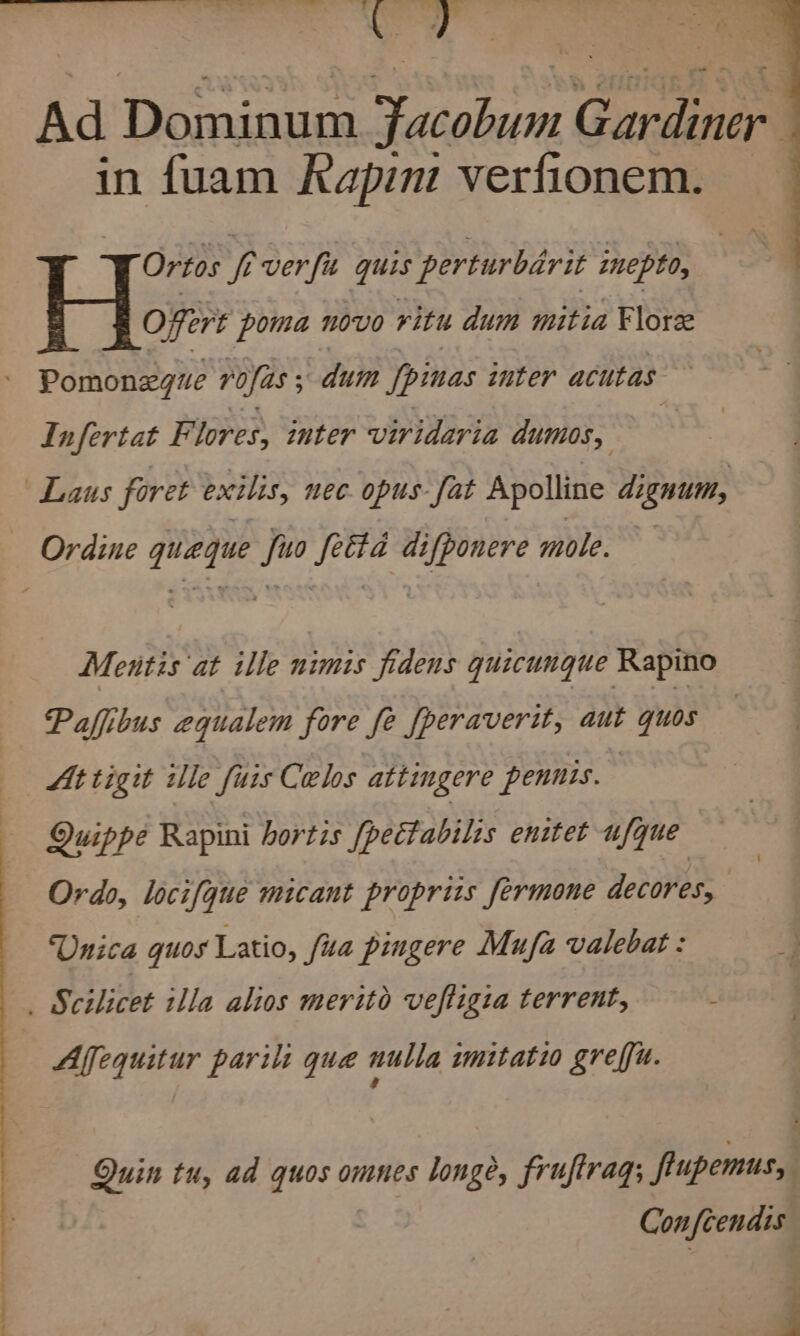 ( )
Ad Dominum Jacobum Gardiner
in ſuam Rapini verſionem.
HOrtos ſi verſu quis perturbárit inepto,
Offert poma novo ritu dum mitia Floræ
Pomonæque roſas; dum ſpinas inter acutas
Inſertat Flores, inter viridaria dumos,
Laus foret exilis, nec opus ſat Apolline dignum,
Ordine quæque ſuo ſectâ diſponere mole.
Mentis at ille nimis fidens quicunque Rapino
Paſſibus æqualem fore ſe ſperaverit, aut quos
Attigit ille ſuis Cœlos attingere pennis.
Quippe Rapini hortis ſpectabilis enitet uſque
Ordo, lociſque micant propriis ſermone decores,
Unica quos Latio, ſua pingere Muſa valebat:
Scilicet illa alios meritò veſtigia terrent,
Aſſequitur parili quæ nulla imitatio greſſu.
Quin tu, ad quos omnes longè, fruſtraq; ſtupemus,
Conſcendis